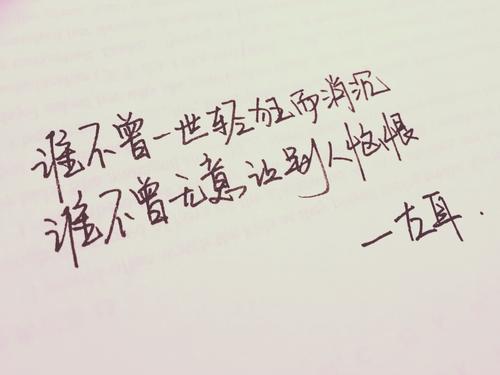 谁不曾一世轻狂而消沉
谁不曾无意让别人恼恨
—左耳.